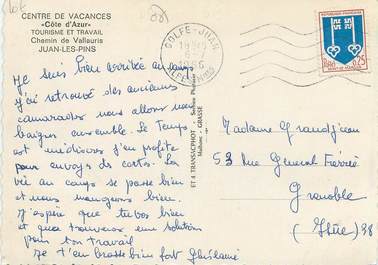 CENTRE DE VACANCES
«Côte d'Azur»
TOURISME ET TRAVAIL
Chemin de Vallauris
JUAN-LES-PINS
GOLFE-JUAN
REPUBLIQUE FRANÇAISE
0,25
Je suis bien arrivée au camp
j'ai retrouvé des anciens
camarades nous allons nous
baigner ensemble. Le Temps
est médiocres j'en profite
pour envoyer des cartes. La
vie au camp se passe bien
et nous mangeons bien.
J'espère que tu vas bien
et que trouveras une solution
pour ton travail
Je t'embrasse bien fort Ghislaine
GRASSE
Madame Grandjean
53 Rue Général Ferrié
Grenoble
(Isère) 38